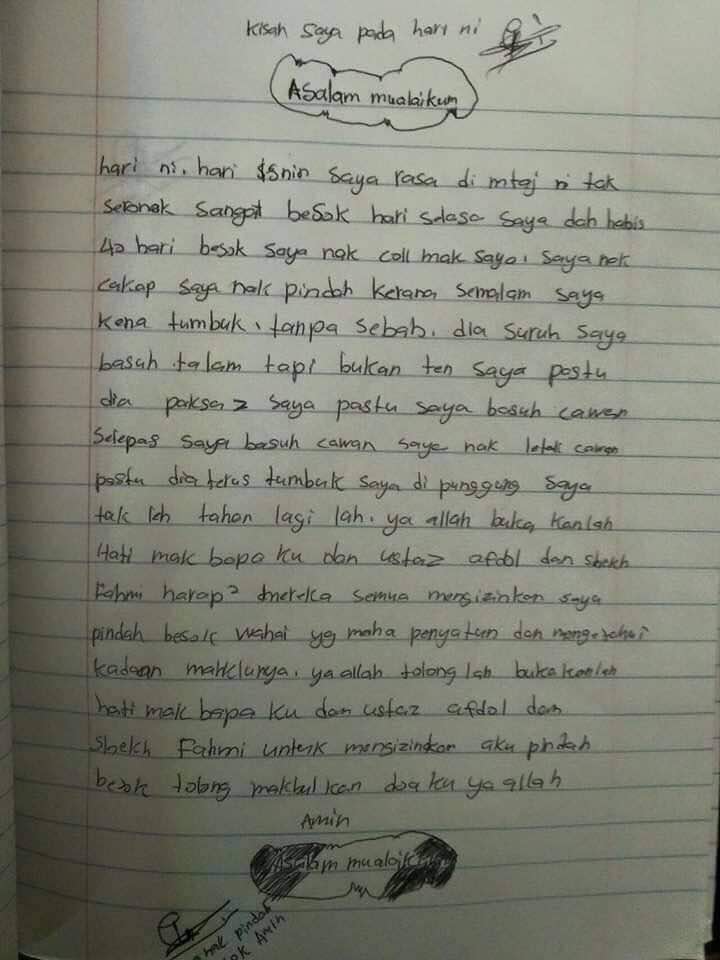 Kisah saya pada hari ni
Asalam mualaikum
hari ni. hari isnin saya rasa di mtaj ni tak
seronok sangat besok hari selasa saya dah habis
40 hari besok saya nak coll mak saya. saya nak
cakap saya nak pindah kerana semalam saya
kena tumbuk. tanpa sebab. dia suruh saya
basuh talam tapi bukan ten saya pastu
dia paksa2 saya pastu saya basuh cawan
selepas saya basuh cawan saya nak letak cawan
pastu dia terus tumbuk saya di punggung saya
tak leh tahan lagi lah. ya allah buka kanlah
Hati mak bapa ku dan ustaz afdol dan sheikh
Fahmi harap2 mereka semua mengizinkan saya
pindah besok wahai yg maha penyatun dan mengetahui
kadaan mahklunya. ya allah tolong lah buka kanlah
hati mak bapa ku dan ustaz afdol dan
sheikh Fahmi untuk mengizinkan aku pindah
besok tolong makbulkan doa ku ya allah
Amin
Asalam mualaik
nak pindah
ok Amin